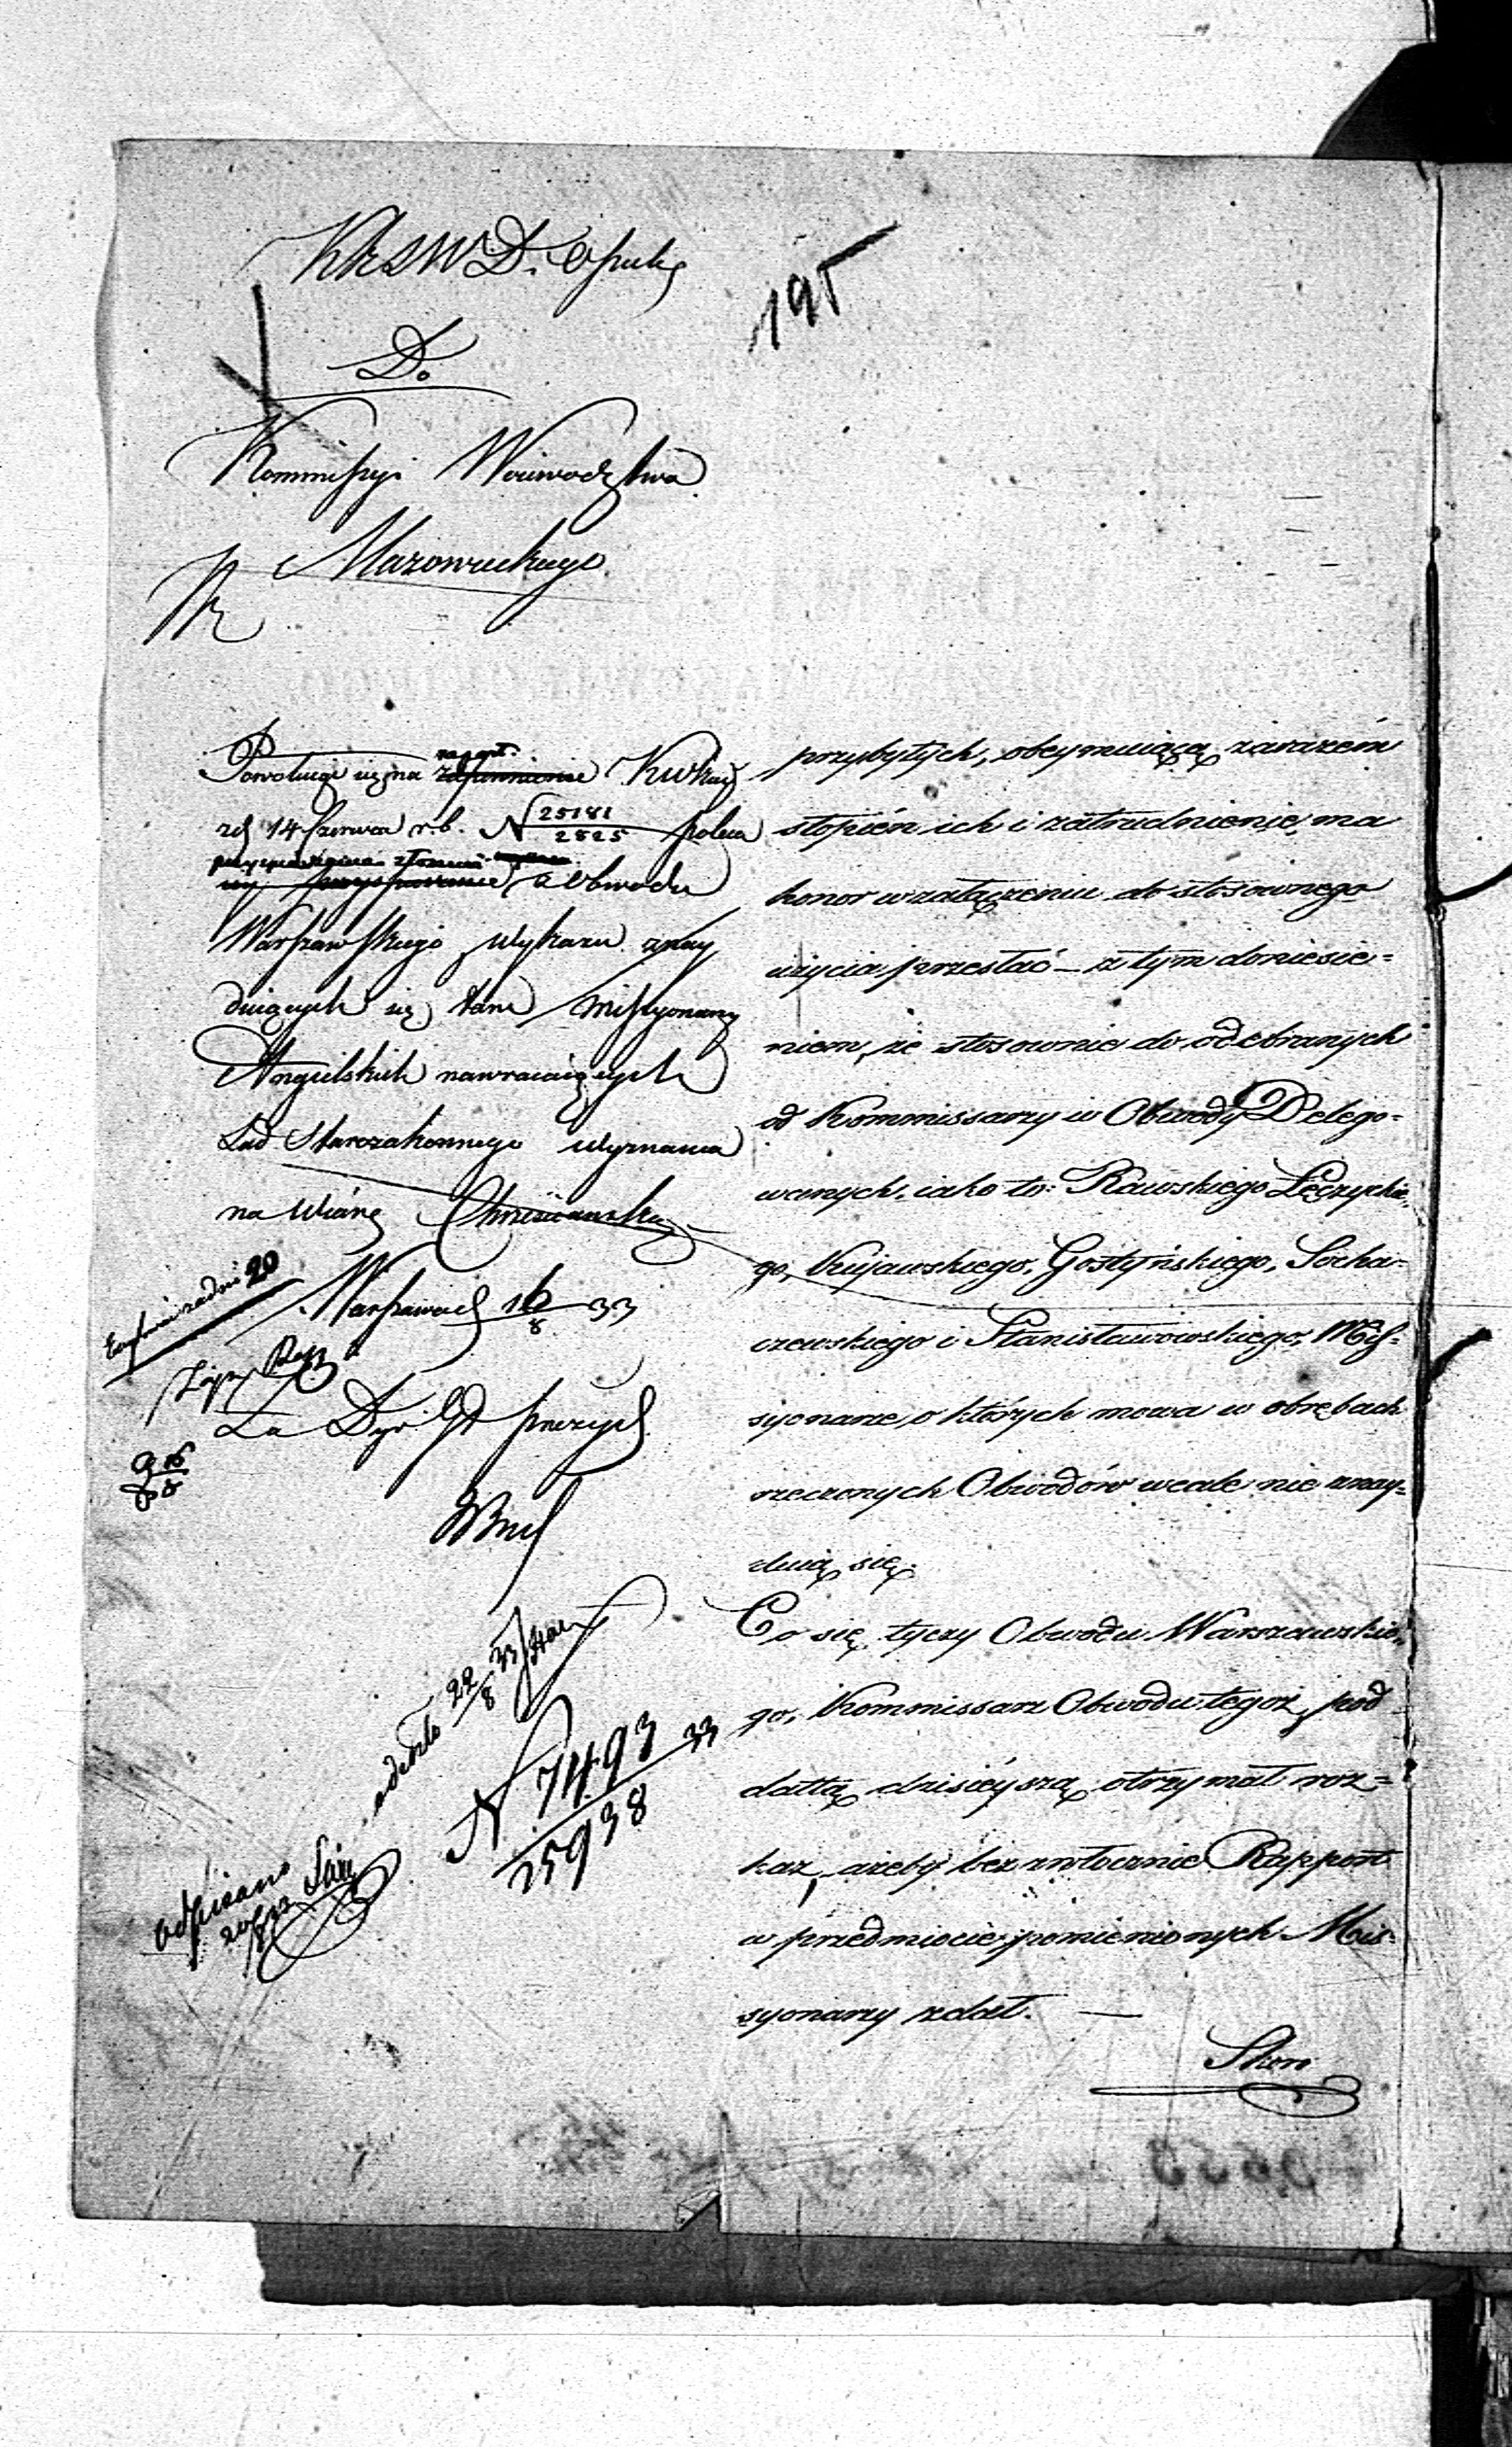 195
Do
Kommissyi Woiewodztwa
Mazowieckiego
rapt.
Powołuiąc się na zapewnienie KWMaz
zd 14 Czerwca r.b. N 25181/2525 poleca
przyspieszenie złożenia
Obwodu
Warszawskiego wykazu znay
duiących się tam Missyonarzy
Angielskich nawracaiących
Lud Starozakonnego wyznania
na wiarę Chrześciańską
Warszawa d 16/8 33
20
Za Dyr. Gł prezyd
odebrło 22/8 33
N 7493/25938 33
Odpisano
przybytych, obeymuiącą zarazem
stopień ich i zatrudnienie, ma
honor w załączeniu do stosownego
użycia przesłać – z tym doniesie=
niem, że stosownie do odebranych
od Kommissarzy w Obwody Delego=
wanych, iako to: Rawskiego Łęczyckie
go, Kujawskiego, Gostyńskiego, Socha-
czewskiego i Stanisławowskiego, Mis=
syonarze, o których mowa w obrębach
rzeczonych Obwodów wcale nie znay=
duią się.
Co się tyczy Obwodu Warszawskie,
go, Kommissarz Obwodu tegoż, pod
dattą dzisieyszą otrzymał roz=
kaz, ażeby bezzwłocznie Rapport
w przedmiocie pomienionych Mis-
syonarzy zdał. —